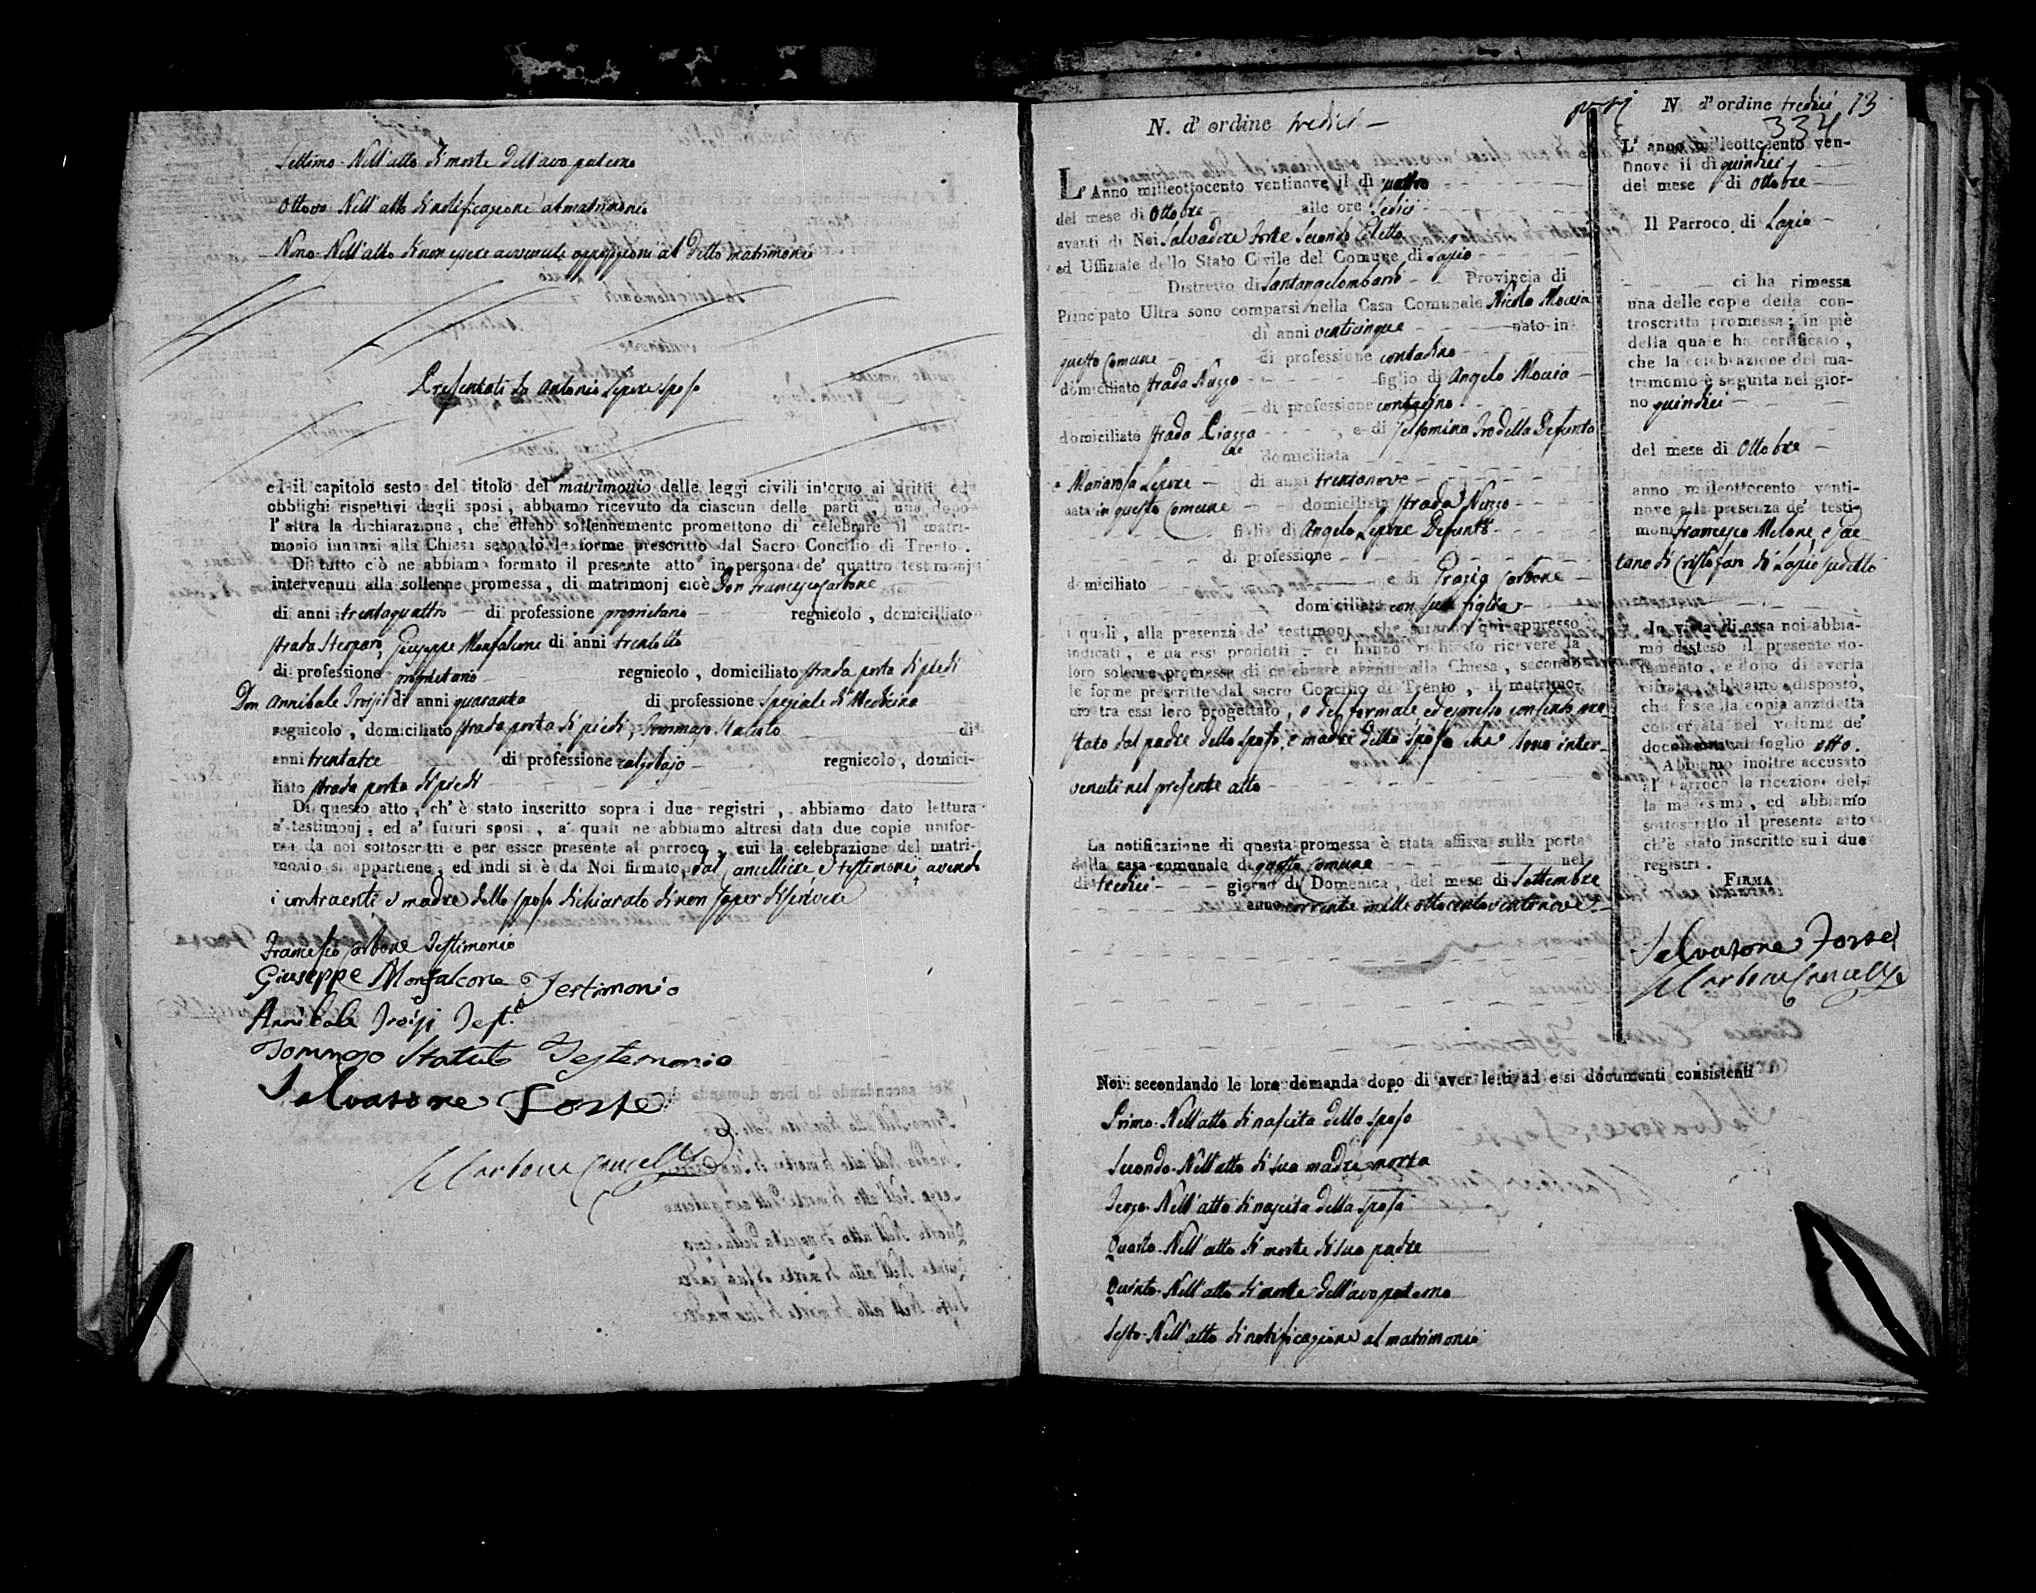 Settimo. Nell'atto di morte dell'avo paterno
Ottavo. Nell'atto di notificazione al matrimonio
Nono. Nell'atto di non essere avvenute opposizioni al detto matrimonio
Presentati da Antonio Lepore sposo
ed il capitolo sesto del titolo del matrimonio delle leggi civili intorno ai dritti ed
obblighi rispettivi degli sposi, abbiamo ricevuto da ciascun delle parti, una dopo
l'altra la dichiarazione, che elleno sollennemente promettono di celebrare il matri-
monio innanzi alla Chiesa secondo le forme prescritto dal Sacro Concilio di Trento.
Di tutto ciò ne abbiamo formato il presente atto in persona de' quattro testimonj
intervenuti alla sollenne promessa, di matrimonj cioè Don Francesco Carbone
di anni trentaquattro di professione proprietario regnicolo, domiciliato
strada Giuseppe Monfalcone di anni trentotto
di professione proprietario regnicolo, domiciliato strada porta di piedi
Don Annibale Troisi di anni quaranta di professione speziale di Medicina
regnicolo, domiciliato strada porta di piedi, Tommaso Statuto di
anni trentatre di professione calzolajo regnicolo, domici-
liato strada porta di piedi
Di questo atto, ch' è stato inscritto sopra i due registri, abbiamo dato lettura
a' testimonj, ed a' futuri sposi, a' quali ne abbiamo altresì data due copie unifor-
mi da noi sottoscritti e per esser presente al parroco, cui la celebrazione del matri-
monio si appartiene, ed indi si è da Noi firmato, dal cancelliere e testimonj avendo
i contraenti e madre dello sposo dichiarato di non saper scrivere
Francesco Carbone Testimonio
Giuseppe Monfalcone Testimonio
Annibale Troisi Test.o
Tommaso Statuto Testemonio
Salvatore Forte
Carbone Cancell.e
N. d'ordine tredici
L'Anno milleottocento ventinove il dì quattro
del mese di Ottobre alle ore sedici
avanti di Noi Salvadore Forte Secondo Eletto
ed Uffiziale dello Stato Civile del Comune di Lapio
Distretto di Santangelombardi Provincia di
Principato Ultra sono comparsi nella Casa Comunale Nicola Moccia
di anni venticinque nato in
questo Comune di professione contadino
domiciliato strada Nuzzo figlio di Angelo Moccia
di professione contadino
domiciliato strada Piazza, e di Gelsomina Irodella Defunta
domiciliata
e Mariarosa Lepore di anni trentanove
nata in questo Comune domiciliata strada Nuzzo
figlia di Angelo Lepore Defunto
di professione
domiciliato e di Grazia Carbone
domiciliata con sua figlia
i quali, alla presenza de' testimonj, che saranno qui appresso
indicati, e da essi prodotti, ci hanno richiesto ricevere la
loro solenne promessa di celebrare avanti alla Chiesa, secondo
le forme prescritte dal sacro Concilio di Trento, il matrimo-
nio tra essi loro progettato, e del formale, ed espresso consenso pre-
stato dal padre dello sposo, e madre della sposa che sono inter-
venuti nel presente atto
La notificazione di questa promessa è stata affissa sulla porta
della casa comunale di questo Comune nel
dì tredici giorno di Domenica, del mese di Settembre
anno corrente mille ottocentoventinove
Noi secondando le loro domanda dopo di aver letti ad essi documenti consistenti
Primo. Nell'atto di nascita dello sposo
Secondo. Nell'atto di sua madre morta
Terzo. Nell'atto di nascita della sposa
Quarto. Nell'atto di morte di suo padre
Quinto. Nell'atto di morte dell'avo paterno
Sesto. Nell'atto di notificazione al matrimonio
N. d'ordine tredici 13
334
L'anno milleottocento ven-
tinove il dì quindici
del mese di Ottobre
Il Parroco di Lapio
ci ha rimessa
una delle copie della con-
troscritta promessa; in piè
della quale ha certificato,
che la celebrazione del ma-
trimonio è seguita nel gior-
no quindici
del mese di Ottobre
anno milleottocento venti-
nove alla presenza de' testi-
monj Francesco Melone, e Gae
tano di Cristofaro di Lapio sudetto
In vista di essa noi abbia-
mo disteso il presente no-
tamento, e dopo di averla
cifrata, abbiamo disposto,
che fosse la copia anzidetta
conservata nel volume de'
documenti al foglio otto.
Abbiamo inoltre accusato
al Parroco la ricezione del-
la medesima, ed abbiamo
sottoscritto il presente atto
ch'è stato inscritto su i due
registri.
FIRMA
Salvatore Forte
Carbone Cancell.e